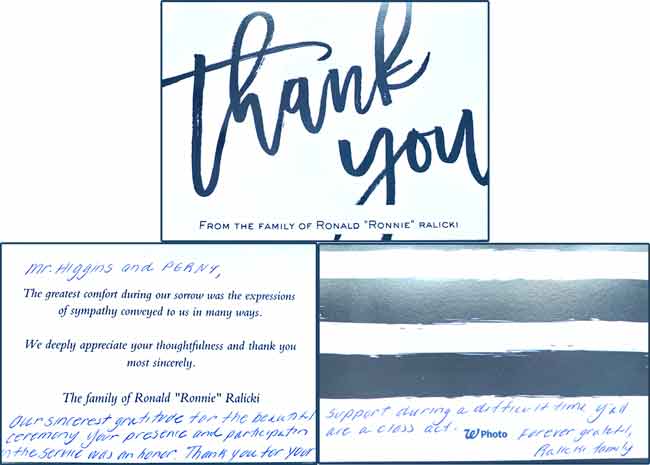 thank
you
FROM THE FAMILY OF RONALD "RONNIE" RALICKI
Mr. Higgins and PGRNY,
The greatest comfort during our sorrow was the expressions
of sympathy conveyed to us in many ways.
We deeply appreciate your thoughtfulness and thank you
most sincerely.
The family of Ronald "Ronnie" Ralicki
Our sincerest gratitude for the beautiful
ceremony. Your presence and participation
in the service was an honor. Thank you for your
support during a difficult time. y'all
are a class act.
W Photo
Forever grateful,
Ralicki family